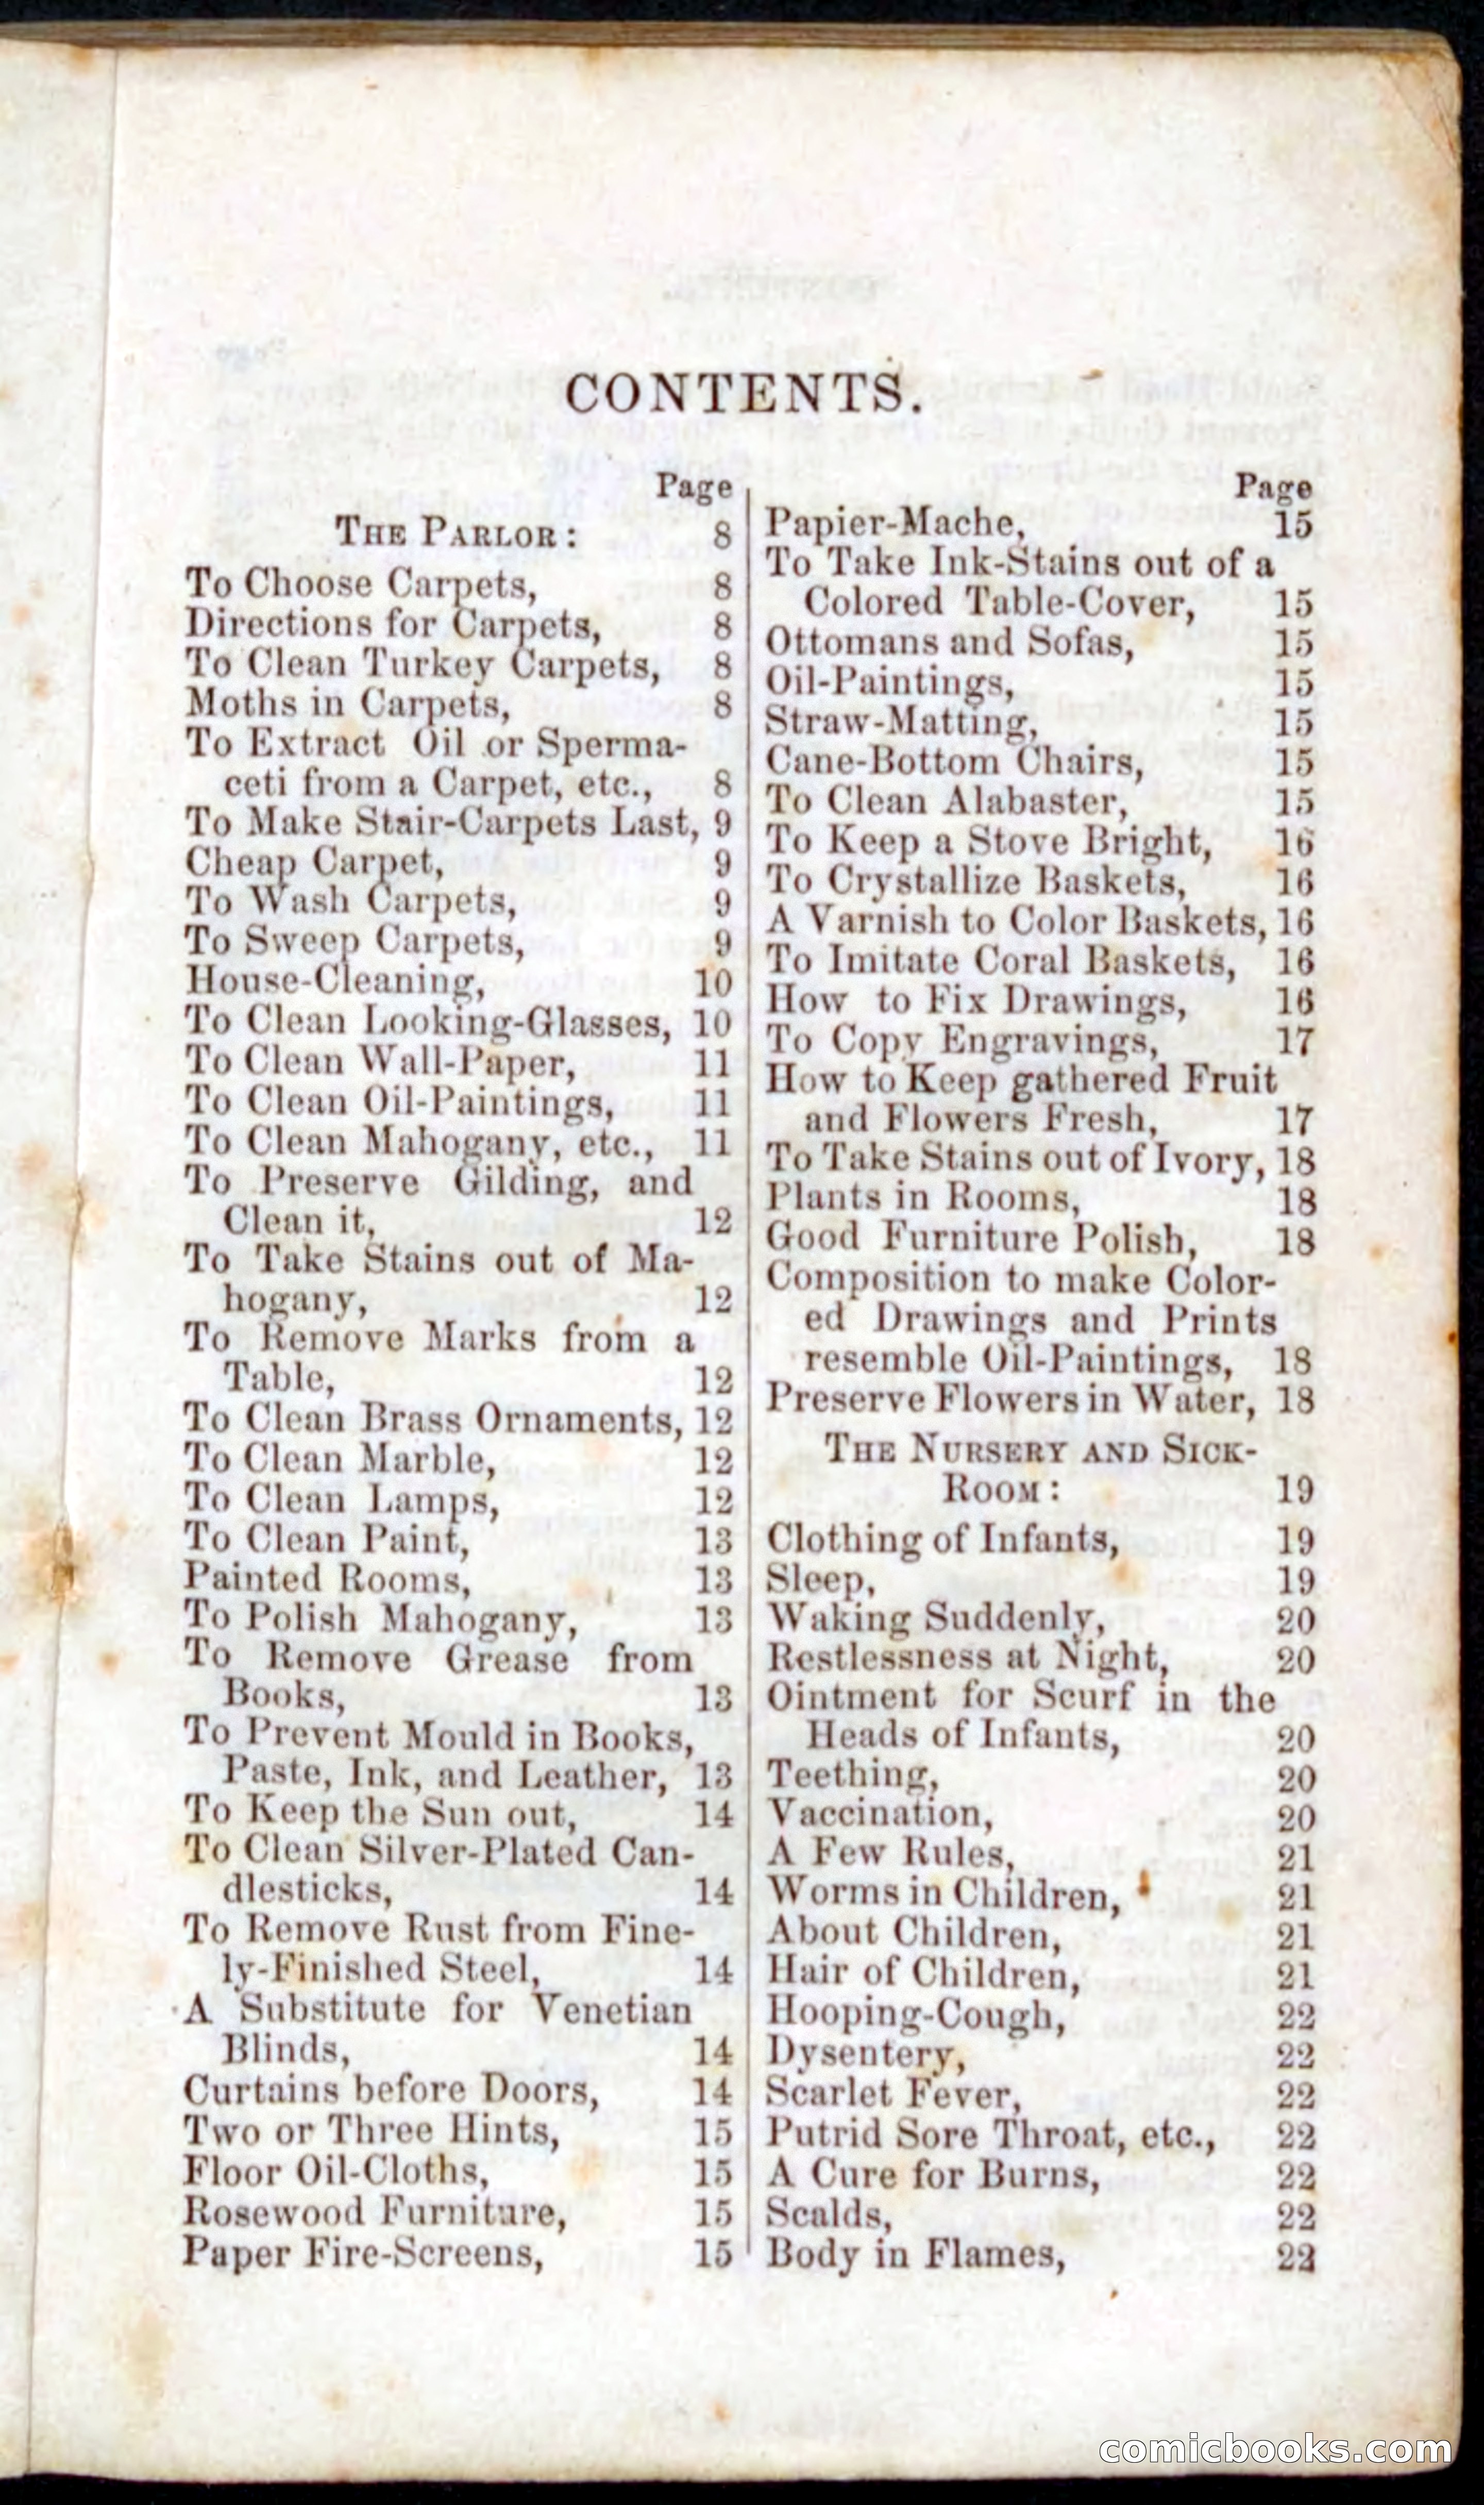 CONTENTS.
Page
THE PARLOR: 8
To Choose Carpets, 8
Directions for Carpets, 8
To Clean Turkey Carpets, 8
Moths in Carpets, 8
To Extract Oil or Sperma-
ceti from a Carpet, etc., 8
To Make Stair-Carpets Last, 9
Cheap Carpet, 9
To Wash Carpets, 9
To Sweep Carpets, 9
House-Cleaning, 10
To Clean Looking-Glasses, 10
To Clean Wall-Paper, 11
To Clean Oil-Paintings, 11
To Clean Mahogany, etc., 11
To Preserve Gilding, and
Clean it, 12
To Take Stains out of Ma-
hogany, 12
To Remove Marks from a
Table, 12
To Clean Brass Ornaments, 12
To Clean Marble, 12
To Clean Lamps, 12
To Clean Paint, 13
Painted Rooms, 13
To Polish Mahogany, 13
To Remove Grease from
Books, 13
To Prevent Mould in Books,
Paste, Ink, and Leather, 13
To Keep the Sun out, 14
To Clean Silver-Plated Can-
dlesticks, 14
To Remove Rust from Fine-
ly-Finished Steel, 14
A Substitute for Venetian
Blinds, 14
Curtains before Doors, 14
Two or Three Hints, 15
Floor Oil-Cloths, 15
Rosewood Furniture, 15
Paper Fire-Screens, 15
Page
Papier-Mache, 15
To Take Ink-Stains out of a
Colored Table-Cover, 15
Ottomans and Sofas, 15
Oil-Paintings, 15
Straw-Matting, 15
Cane-Bottom Chairs, 15
To Clean Alabaster, 15
To Keep a Stove Bright, 16
To Crystallize Baskets, 16
A Varnish to Color Baskets, 16
To Imitate Coral Baskets, 16
How to Fix Drawings, 16
To Copy Engravings, 17
How to Keep gathered Fruit
and Flowers Fresh, 17
To Take Stains out of Ivory, 18
Plants in Rooms, 18
Good Furniture Polish, 18
Composition to make Color-
ed Drawings and Prints
resemble Oil-Paintings, 18
Preserve Flowers in Water, 18
THE NURSERY AND SICK-
ROOM: 19
Clothing of Infants, 19
Sleep, 19
Waking Suddenly, 20
Restlessness at Night, 20
Ointment for Scurf in the
Heads of Infants, 20
Teething, 20
Vaccination, 20
A Few Rules, 21
Worms in Children, 21
About Children, 21
Hair of Children, 21
Hooping-Cough, 22
Dysentery, 22
Scarlet Fever, 22
Putrid Sore Throat, etc., 22
A Cure for Burns, 22
Scalds, 22
Body in Flames, 22
comicbooks.com